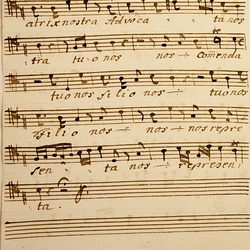 atrix nostra Advoca ta nos
tra tuo nos nos ÷ Comenda
tuo nos filio nos ÷ tuo nos
filio nos ÷ nos ÷ nos repre
sen ta nos represen
ta.